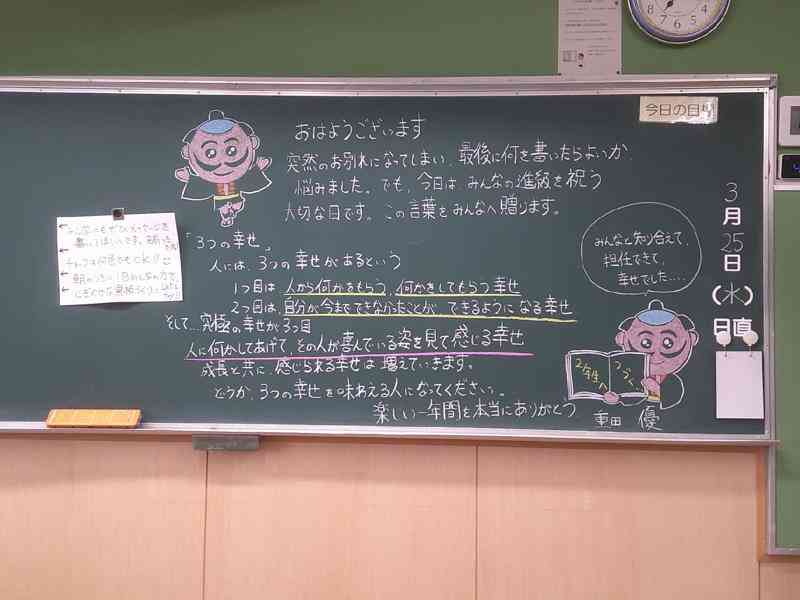 今日の目
おはようございます
突然のお別れになってしまい、最後に何を書いたらよいか、
悩みました。でも、今日は、みんなの進級を祝う
大切な日です。この言葉をみんなへ贈ります。
「3つの幸せ」
人には、3つの幸せがあるという
1つ目は、人から何かをもらう、何かをしてもらう幸せ
2つ目は、自分が今までできなかったことが、できるようになる幸せ
そして…究極の幸せが3つ目
人に何かしてあげて、その人が喜んでいる姿を見て感じる幸せ
成長と共に、感じられる幸せは増えていきます。
どうか、3つの幸せを味わえる人になってください。
楽しい一年間を本当にありがとう
重田 優
みんなと知り合えて、
担任できて、
幸せでした....
2年生
つづく
3月25日(水)
日直